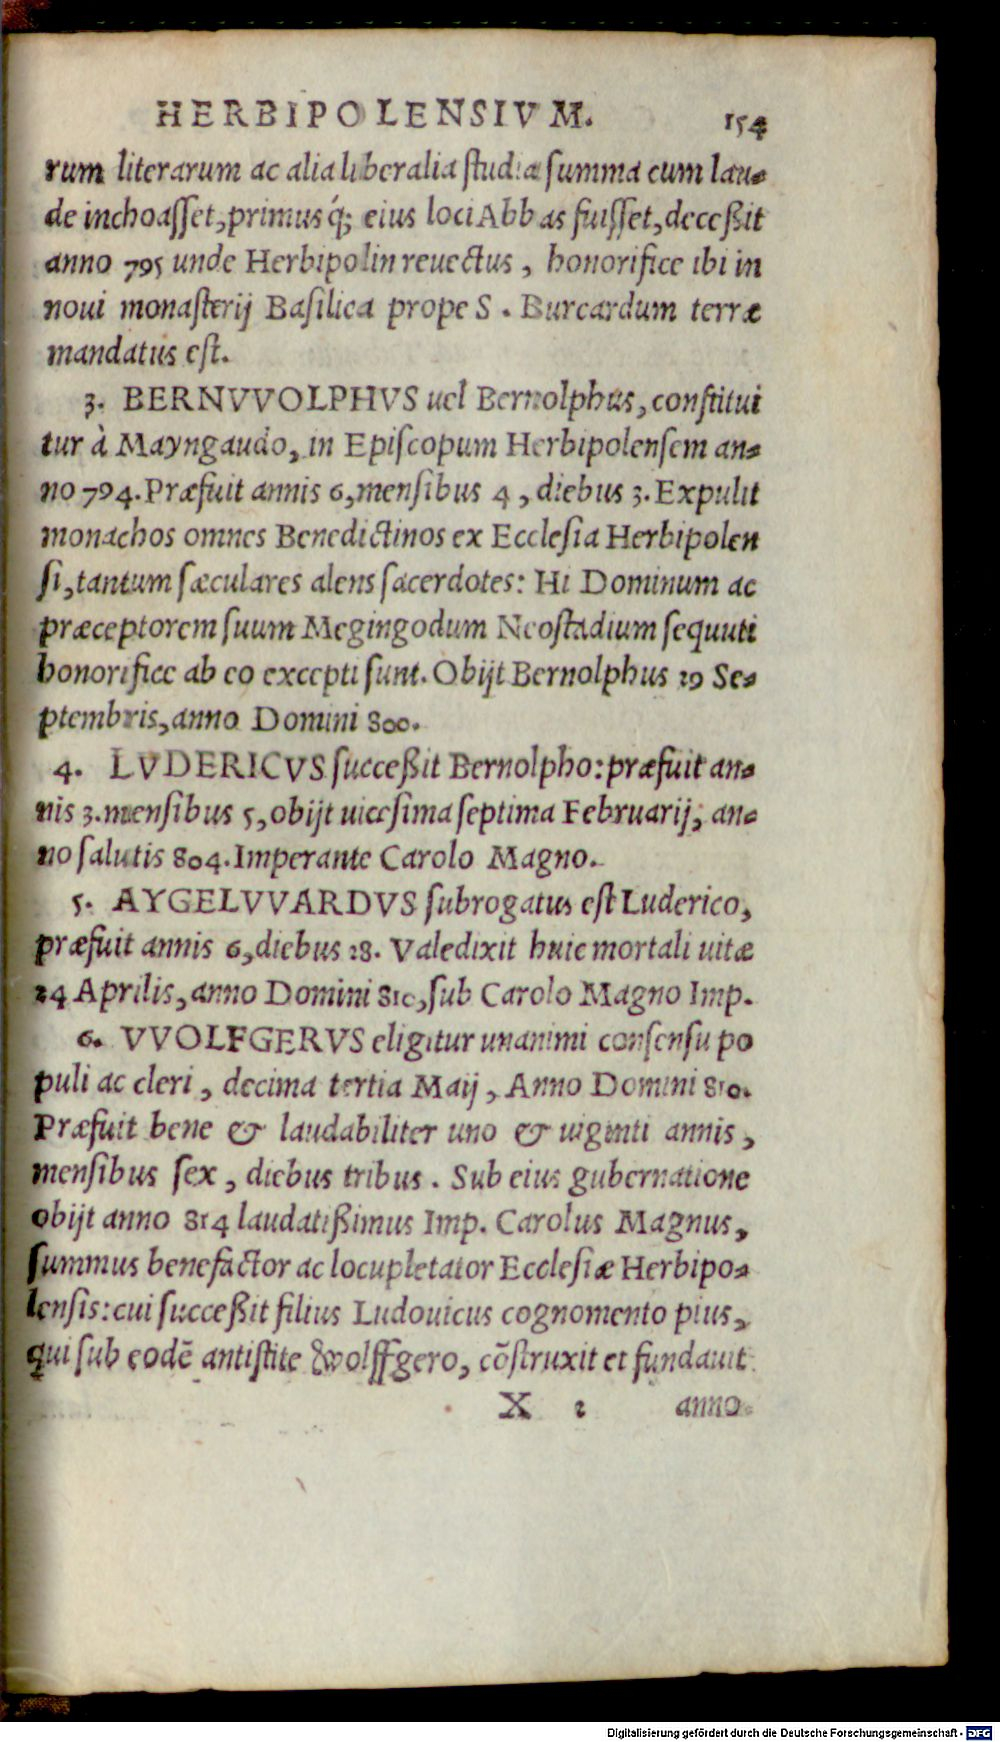 HERBIPOLENSIVM. 154
rum literarum ac alia liberalia studia summa cum lau-
de inchoasset, primusq́; eius loci Abbas fuisset, deceßit
anno 795 unde Herbipolin reuectus, honorifice ibi in
noui monasterij Basilica prope S. Burcardum terræ
mandatus est.
3. BERNVVOLPHVS uel Bernolphus, constitui
tur à Mayngaudo, in Episcopum Herbipolensem an-
no 794. Præfuit annis 6, mensibus 4, diebus 3. Expulit
monachos omnes Benedictinos ex Ecclesia Herbipolen
si, tantum sæculares alens sacerdotes: Hi Dominum ac
præceptorem suum Megingodum Neostadium sequuti
honorifice ab eo excepti sunt. Obijt Bernolphus 29 Se-
ptembris, anno Domini 800.
4. LVDERICVS succeßit Bernolpho: præfuit an-
nis 3. mensibus 5, obijt uicesima septima Februarij, an-
no salutis 804. Imperante Carolo Magno.
5. AYGELVVARDVS subrogatus est Luderico,
præfuit annis 6, diebus 28. Valedixit huic mortali uitæ
24 Aprilis, anno Domini 810, sub Carolo Magno Imp.
6. VVOLFGERVS eligitur unanimi consensu po
puli ac cleri, decima tertia Maij, Anno Domini 810.
Præfuit bene & laudabiliter uno & uiginti annis,
mensibus sex, diebus tribus. Sub eius gubernatione
obijt anno 814 laudatißimus Imp. Carolus Magnus,
summus benefactor ac locupletator Ecclesiæ Herbipo-
lensis: cui succeßit filius Ludouicus cognomento pius,
qui sub eodē antistite Wolffgero, cōstruxit et fundauit
X 2 anno
Digitalisierung gefördert durch die Deutsche Forschungsgemeinschaft - DFG